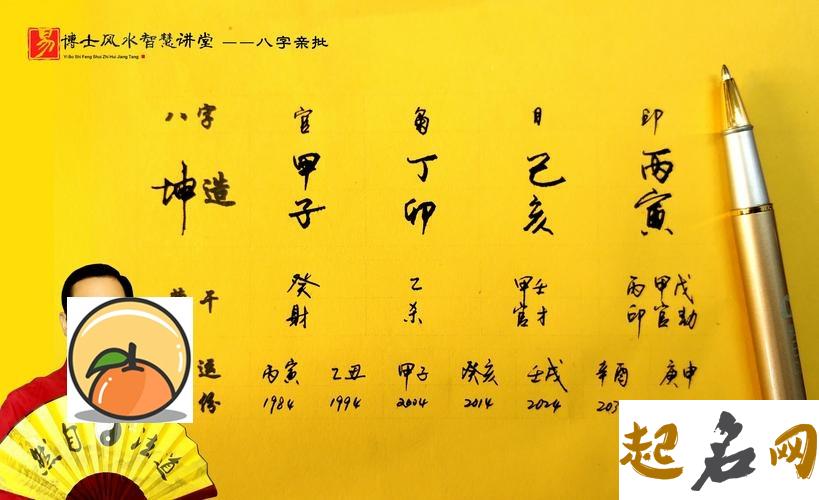 易博士风水智慧讲堂 ——八字亲批
Yi Bo Shi Feng Shui Zhi Hui Jiang Tang
八字 官 枭 日 印
坤造 甲 丁 己 丙
子 卯 亥 寅
干 癸 乙 甲壬 丙甲戊
財 杀 官才 印官劫
运 丙寅 乙丑 甲子 癸亥 壬戌 辛酉 庚申
份 1984 1994 2004 2014 2024
然自法道
起名网